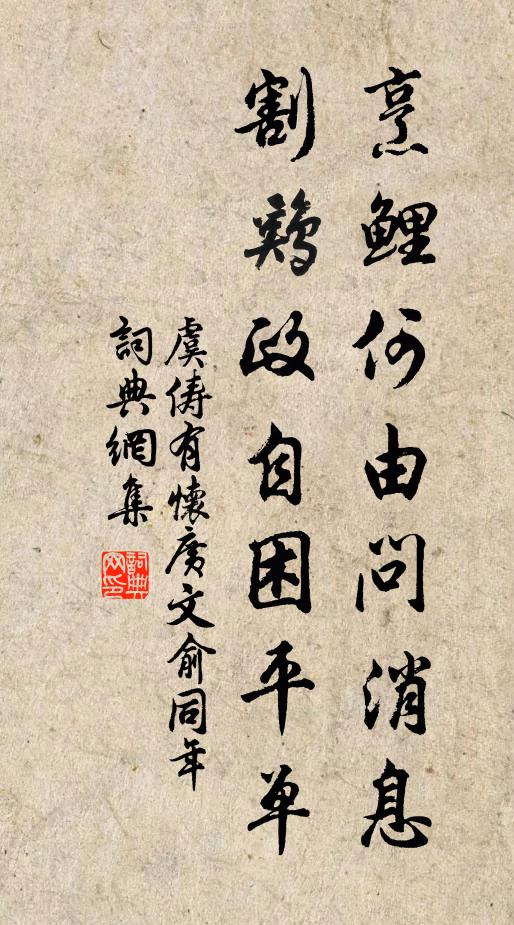 烹鯉何由問消息
割鷄政自困平单
虞儔有懷廣文俞同年
詞典網集
詞典網印